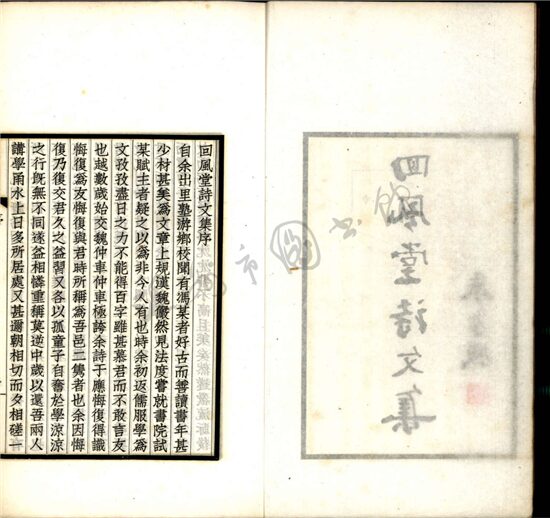 回風堂詩文集
回風堂詩文集序
自余出里塾游鄉校聞有馮某者好古而善讀書年甚
少材甚美為文章上規漢魏儼然見法度嘗就書院試
某賦主者疑之以為非今人有也時余初返儒服學為
文孜孜盡日之力不能得百字雖甚慕君而不敢言友
也越數歲始交魏仲車仲車極誇余詩于應悔復得識
悔復為友悔復與君時所稱為吾邑二雋者也余因悔
復乃復交君久之益習又各以孤童子自奮於學涼涼
之行既無不同遂益相憐重稱莫逆中歲以還吾兩人
講學甬水上日多所居處又甚邇朝相切而夕相磋一